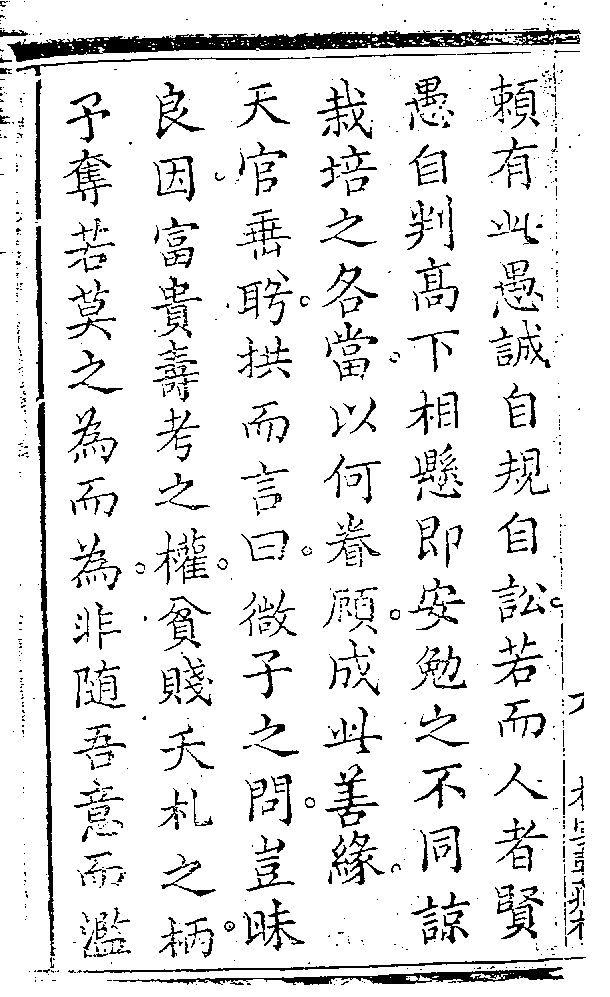 頼有此愚誠自規自訟。若而人者賢
愚自判高下相懸即安勉之不同諒
栽培之各當。以何眷顧。成此善緣。
天官垂聆。拱而言曰。微子之問。豈昧
良因。富貴壽考之權。貧賤夭札之柄。
予奪若莫之為而為。非随吾意而濫